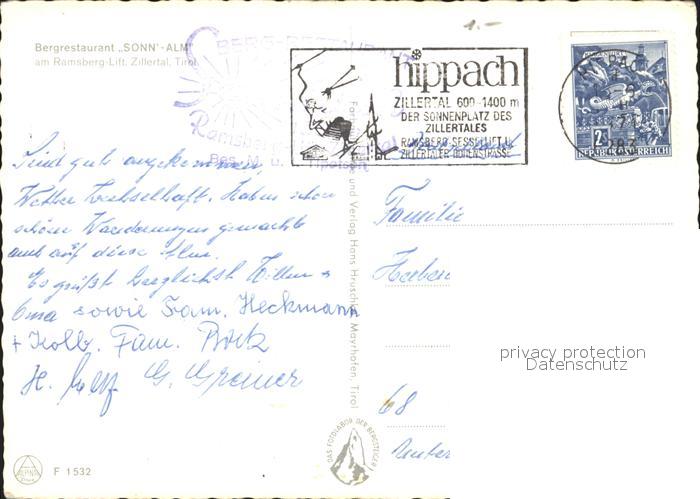 1.-
Bergrestaurant „SONN'-ALM"
am Ramsberg-Lift, Zillertal, Tirol
BERG-RESTAURANT
Ramsberg-
Bes. M. u.
hippach
ZILLERTAL 600-1400 m
DER SONNENPLATZ DES
ZILLERTALES
RAMSBERG-SESSELLIFT U.
ZILLERTALER HÖHENSTRASSE
2S
REPUBLIK ÖSTERREICH
Sind gut angekommen,
Wetter wechselhaft. Haben schon
schöne Wanderungen gemacht
auch auf diese Alm.
Es grüßt herzlichst Willi u
Oma sowie Fam. Heckmann
+ Kolb. Fam.
H. G. Greiner
und Verlag Hans Hruschka, Mayrhofen, Tirol
Familie
Haben
68
Unter
privacy protection
Datenschutz
DAS FOTOLABOR DER BERGSTEIGER
ALPINA
F 1532